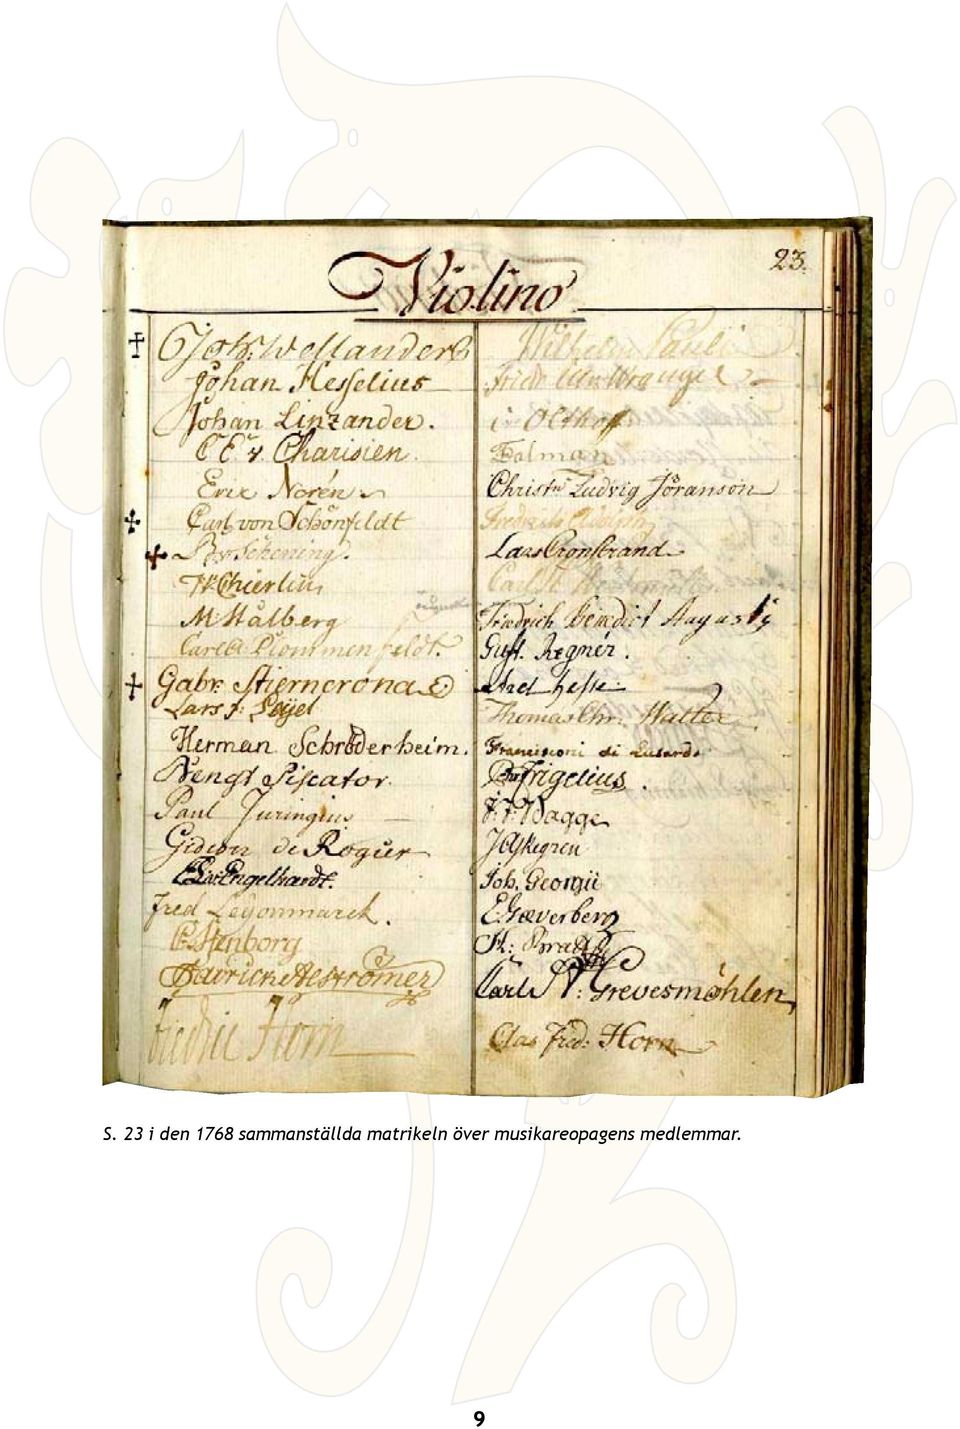 Violino
23.
Joh: Wellander
Johan Hesselius
Johan Linzander.
C E v. Charisien.
Eric Norén
Carl von Schönfeldt
v. Schening.
W. Chierlin
M: Walberg
Carl Blommenfeldt.
Gabr: Stierncrona
Lars J: Leijel
Herman Schröderheim.
Bengt Piscator.
Paul Juringius
Gideon de Rogier
Engelhardt.
Fred Leyonmarck.
C. Stenborg
Patrick Alströmer
Fredric Horn
Wilhelm Pauli
Fried: Wrangel
Olthoff
Falman
Christn Ludvig Jöranson
Fredrich
Lars Cronstrand
Carl
Friedrich Benedict Augusti
Gust. Regnér.
Axel Hesse
Thomas Chr. Walter
Francisconi di Lusardo
Frigelius
F: F: Wagge
J Askegren
Joh. Georgii
E: Græverberg
Carl N: Grevesmöhlen
Clas Fred: Horn
S. 23 i den 1768 sammanställda matrikeln över musikareopagens medlemmar.
9